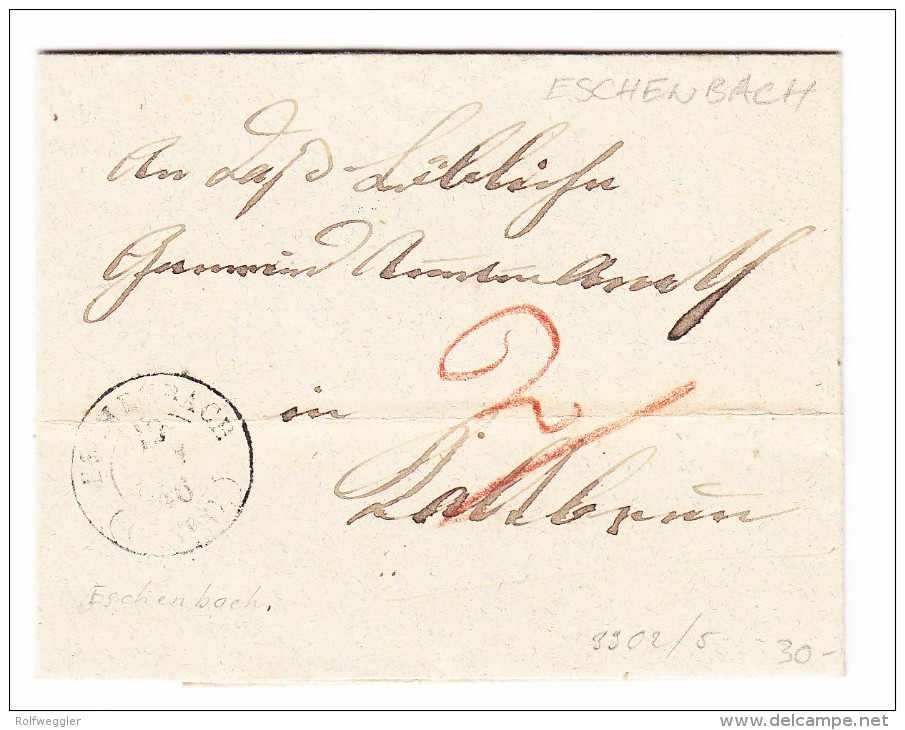 ESCHENBACH
An das Löbliche
Gemeind Ammann Amt
in 2
Kaltbrunn
ESCHENBACH
Eschenbach.
3302/5
30-
Rolfweggler
www.delcampe.net